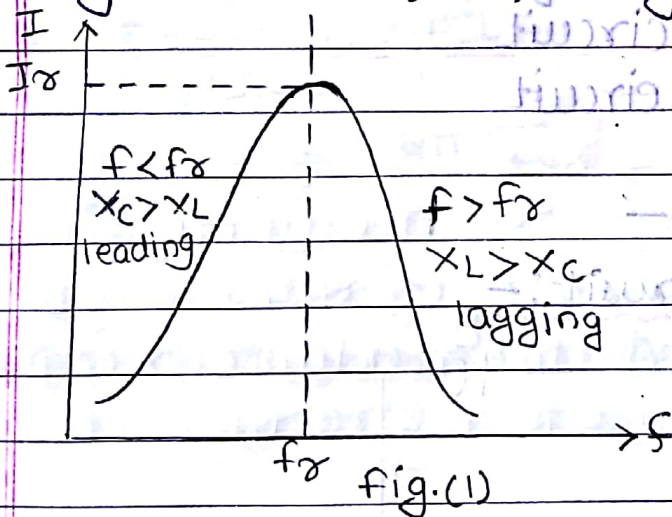 I
Ir
f < fr
Xc > XL
leading
f > fr
XL > Xc
lagging
fr
f
fig.(1)